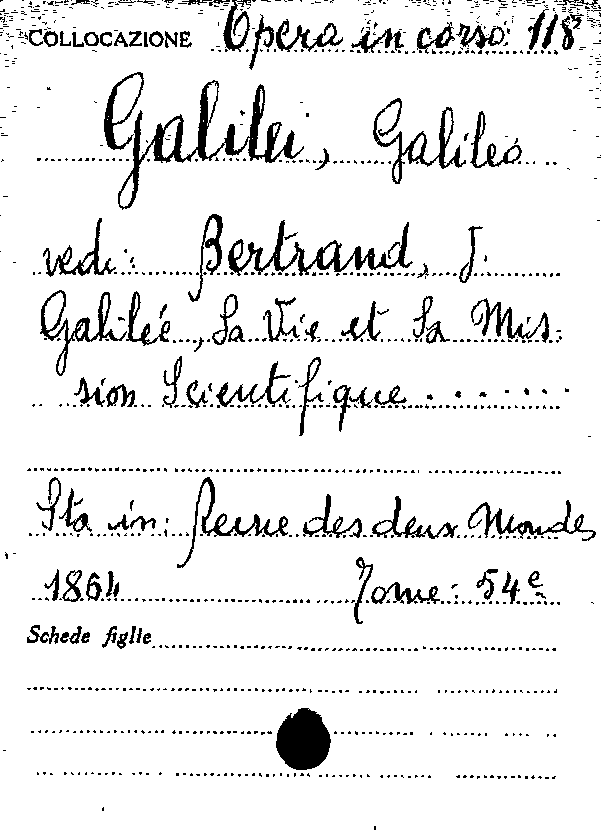 COLLOCAZIONE Opera in corso 118
Galilei, Galileo
vedi: Bertrand, J.
Galilée, Sa Vie et Sa Mis-
sion Scientifique .......
Sta in: Revue des deux Mondes
1864 Tome: 54e
Schede figlie